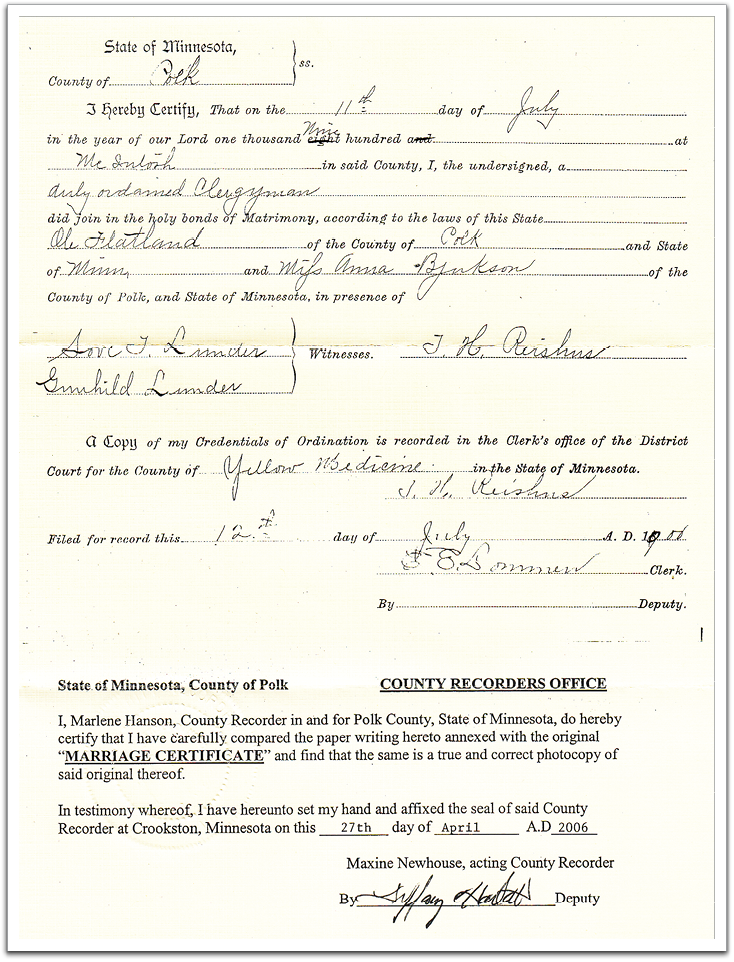 State of Minnesota,
County of Polk ss.
I Hereby Certify, That on the 11th day of July
in the year of our Lord one thousand eight Nine hundred and at
McIntosh in said County, I, the undersigned, a
duly ordained Clergyman
did join in the holy bonds of Matrimony, according to the laws of this State
Ole Flatland of the County of Polk and State
of Minn, and Miss Anna of the
County of Polk, and State of Minnesota, in presence of
T. Lunder Witnesses. T. H. Reishus
Gunhild Lunder
A Copy of my Credentials of Ordination is recorded in the Clerk's office of the District
Court for the County of Yellow Medicine in the State of Minnesota.
T. H. Reishus
Filed for record this 12th day of July A. D. 1900
Clerk.
By Deputy.
State of Minnesota, County of Polk COUNTY RECORDERS OFFICE
I, Marlene Hanson, County Recorder in and for Polk County, State of Minnesota, do hereby
certify that I have carefully compared the paper writing hereto annexed with the original
“MARRIAGE CERTIFICATE” and find that the same is a true and correct photocopy of
said original thereof.
In testimony whereof, I have hereunto set my hand and affixed the seal of said County
Recorder at Crookston, Minnesota on this 27th day of April A.D 2006
Maxine Newhouse, acting County Recorder
By Deputy